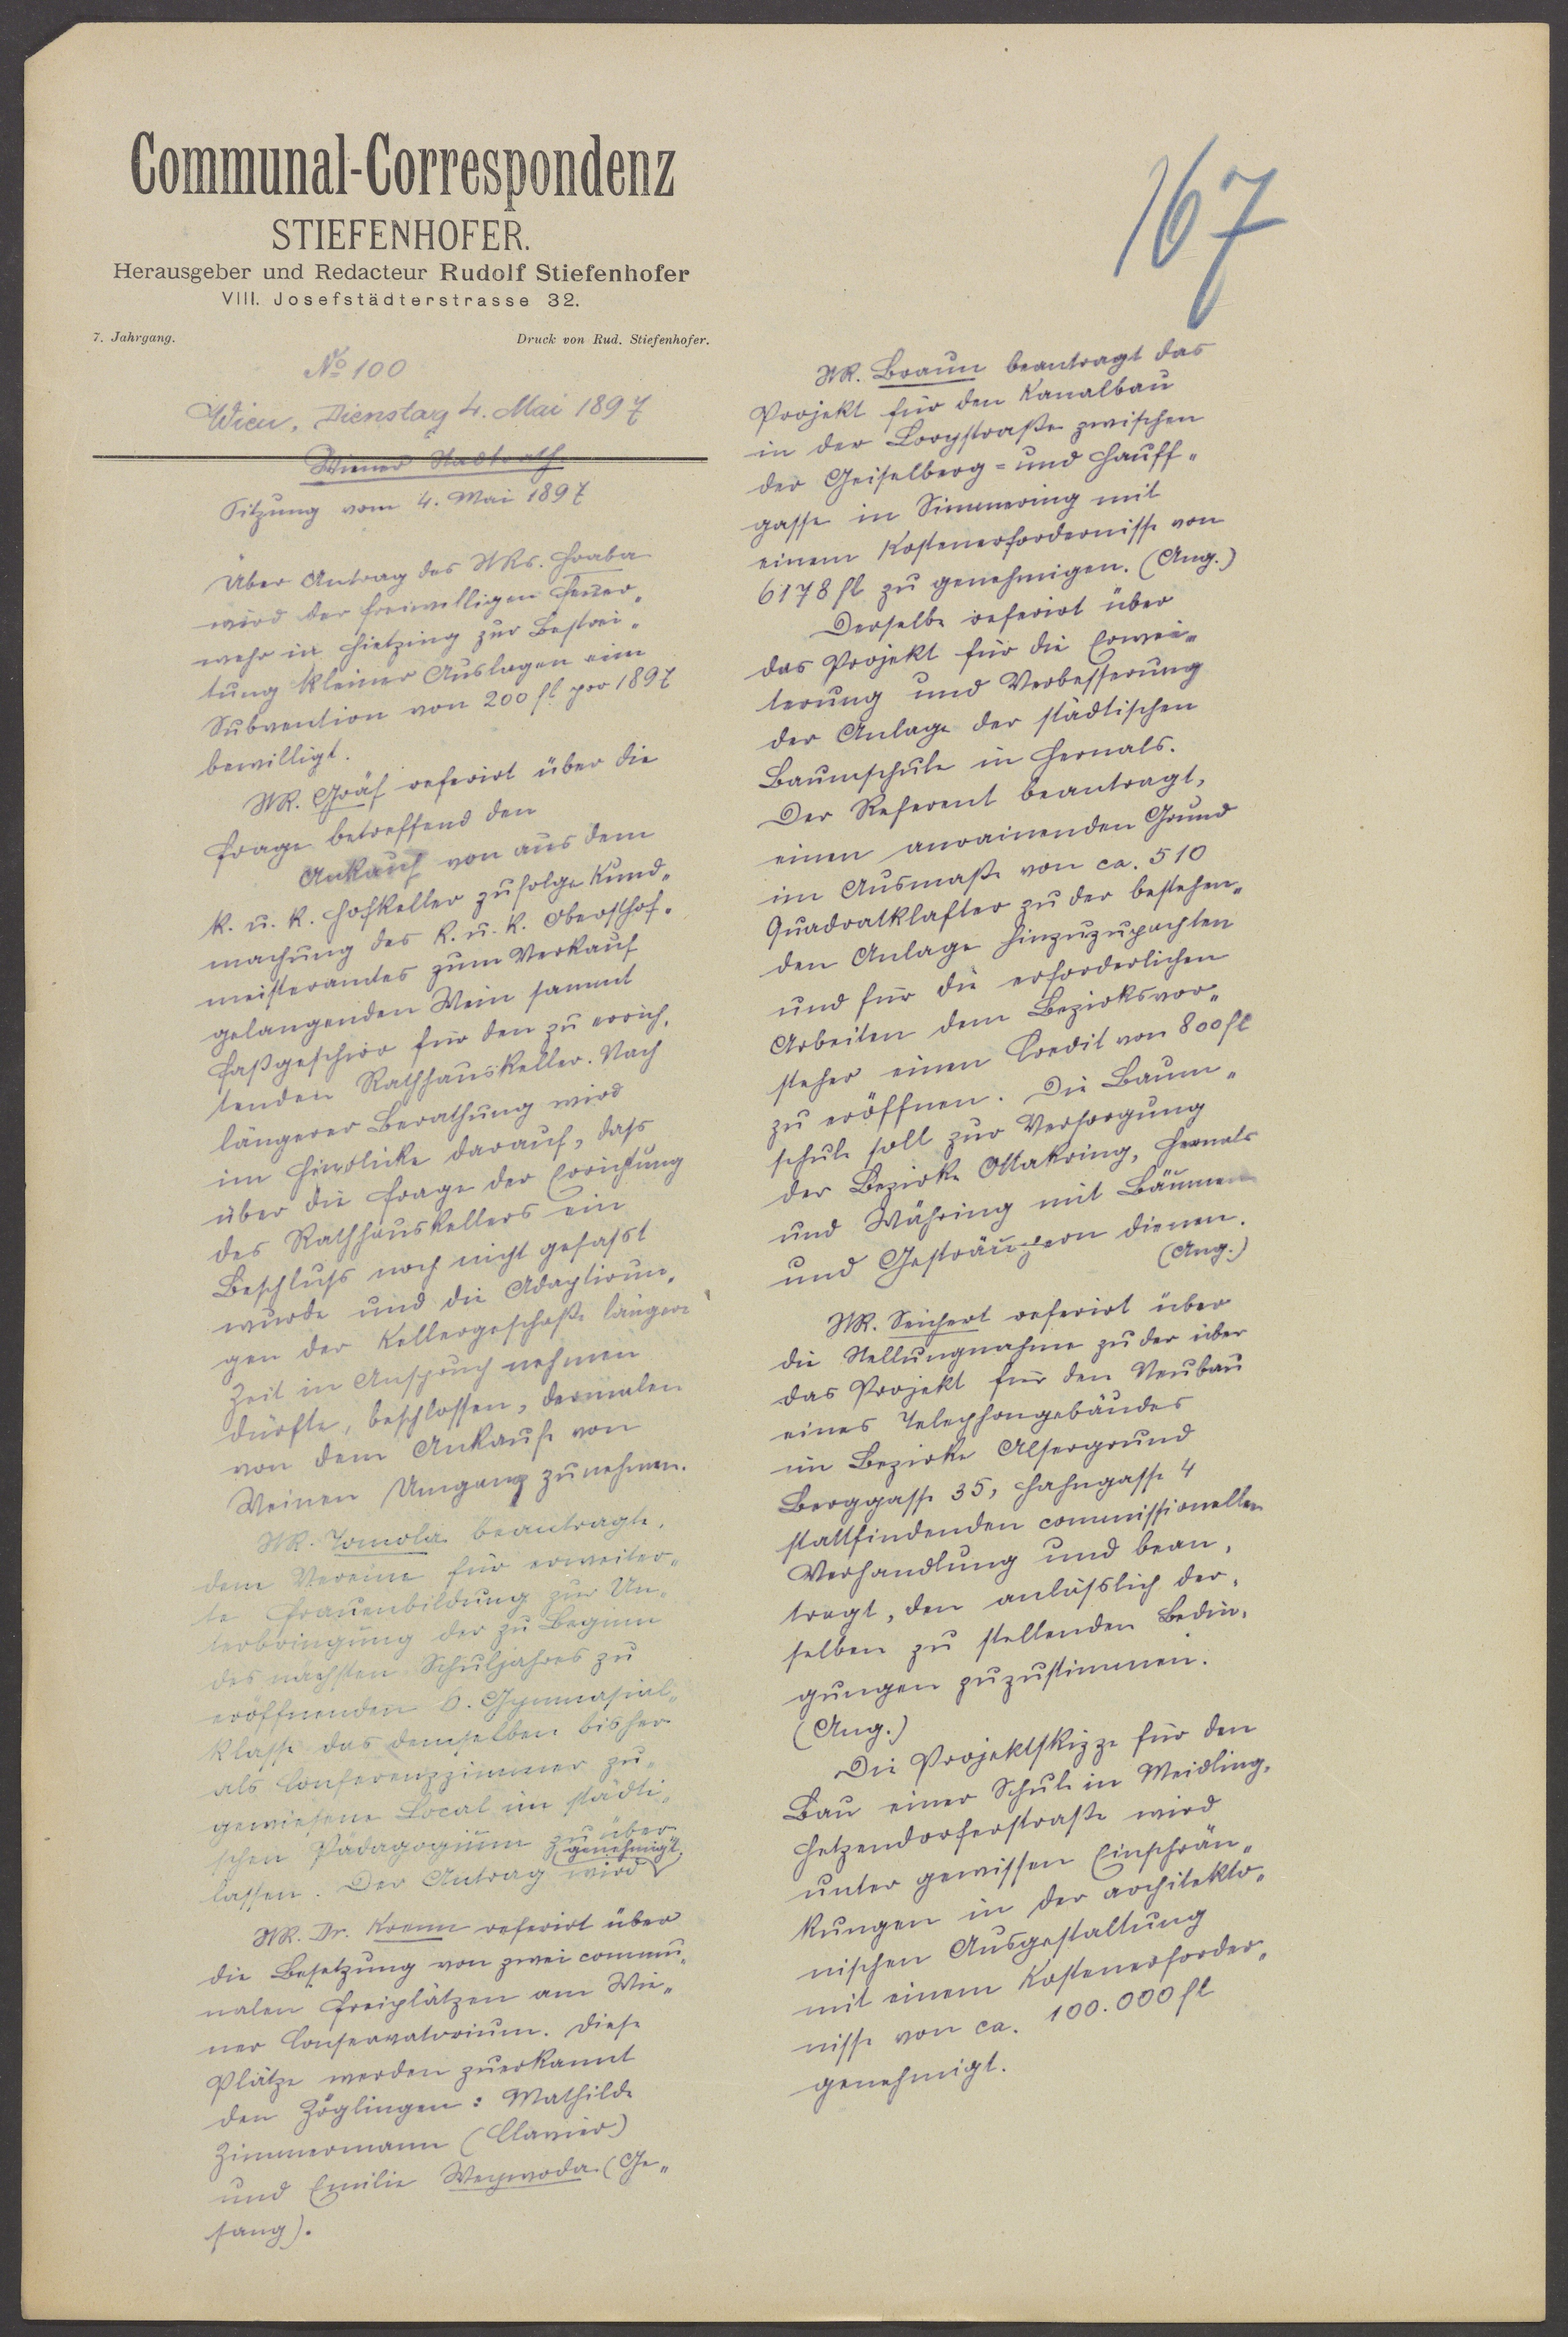 Communal-Correspondenz
STIEFENHOFER.
Herausgeber und Redacteur Rudolf Stiefenhofer
VIII. Josefstädterstrasse 32.
7. Jahrgang. Druck von Rud. Stiefenhofer.
No 100
Wien, Dienstag 4. Mai 1897
Wiener Stadtrath
Sitzung vom 4. Mai 1897
Über Antrag des StRs. Hraba
wird der freiwilligen Feuer„
wehr in Hietzing zur Bestrei„
tung kleiner Auslagen eine
Subvention von 200 fl pro 1897
bewilligt.
StR. Gräf referirt über die
Frage betreffend den
Ankauf von aus dem
k. u. k. Hofkeller zufolge Kund„
machung des k. u. k. Obersthof„
meisteramtes zum Verkauf
gelangenden Wein sammt
Faßgeschirr für den zu errich„
tenden Rathhauskeller. Nach
längerer Berathung wird
im Hinblicke darauf, dass
über die Frage der Errichtung
des Rathhauskellers ein
Beschluss noch nicht gefasst
wurde und die Adaptirun„
gen der Kellergeschoße längere
Zeit in Anspruch nehmen
dürfte, beschlossen, dermalen
von dem Ankaufe von
Weinen Umgang zu nehmen.
StR. Tomola beantragte,
dem Vereine für erweiter„
te Frauenbildung zur Un„
terbringung der zu Beginn
des nächsten Schuljahres zu
eröffnenden 6. Gymnasial„
klasse das demselben bisher
als Conferenzzimmer zu„
gewiesene Local im städti„
schen Pädagogium zu über
lassen. Der Antrag wird genehmigt.
StR. Dr. Krenn referirt über
die Besetzung von zwei commu„
nalen Freiplätzen am Wie„
ner Conservatorium. Diese
Plätze werden zuerkannt
den Zöglingen: Mathilde
Zimmermann (Clavier)
und Emilie Weywoda (Ge„
sang).
167
StR. Braun beantragt das
Projekt für den Kanalbau
in der Lorystraße zwischen
der Geiselberg= und Hauff„
gasse in Simmering mit
einem Kostenerfordernisse von
6178 fl zu genehmigen. (Ang.)
Derselbe referirt über
das Projekt für die Erwei„
terung und Verbesserung
der Anlage der städtischen
Baumschule in Hernals.
Der Referent beantragt,
einen anrainenden Grund
im Ausmaße von ca. 510
Quadratklafter zu der bestehen„
den Anlage hinzuzupachten
und für die erforderlichen
Arbeiten dem Bezirksvor„
steher einen Credit von 800 fl
zu eröffnen. Die Baum„
schule soll zur Versorgung
der Bezirke Ottakring, Hernals
und Währing mit Bäumen
und Gesträuchern dienen.
(Ang.)
StR. Seichert referirt über
die Stellungnahme zu der über
das Projekt für den Neubau
eines Telephongebäudes
im Bezirke Alsergrund
Berggasse 35, Hahngasse 4
stattfindenden commissionellen
Verhandlung und bean„
tragt, den anlässlich der„
selben zu stellenden Bedin„
gungen zuzustimmen.
(Ang.)
Die Projektskizze für den
Bau einer Schule in Meidling,
Hetzendorferstraße wird
unter gewissen Einschrän„
kungen in der architekto„
nischen Ausgestaltung
mit einem Kostenerforder„
nisse von ca. 100.000 fl
genehmigt.